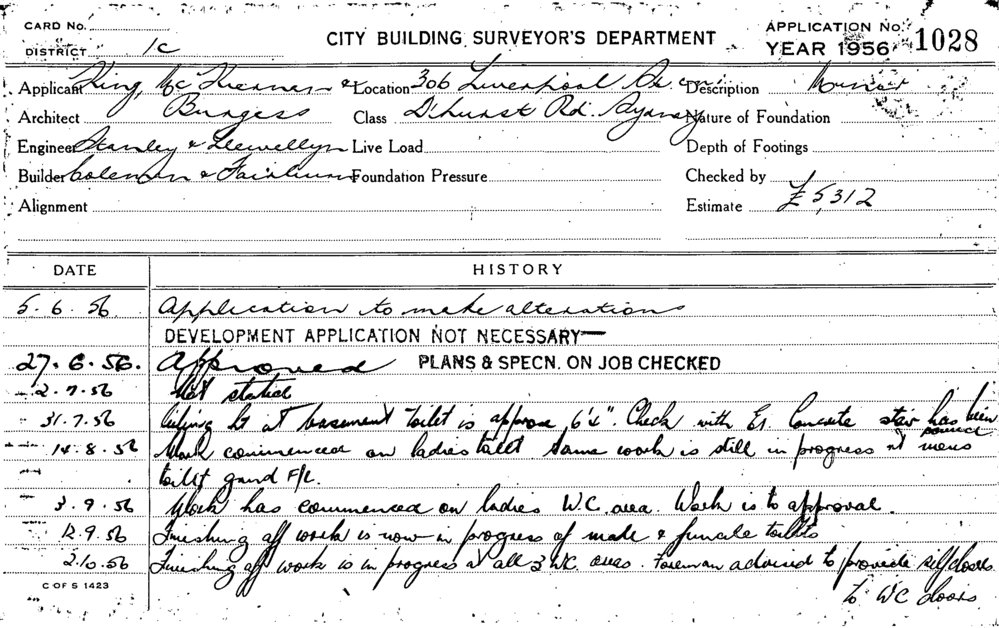 CARD No.
DISTRICT 1c
CITY BUILDING SURVEYOR'S DEPARTMENT
APPLICATION No. 1028
YEAR 1956
Applicant King, &
Location 306 Liverpool
Description Minor
Architect Burgess
Class D'hurst Rd.
Nature of Foundation
Engineer Stanley & Llewellyn
Live Load
Depth of Footings
Builder Coleman &
Foundation Pressure
Checked by
Alignment
Estimate £5,312
DATE HISTORY
5.6.56 Application to make alterations
DEVELOPMENT APPLICATION NOT NECESSARY
27.6.56. Approved PLANS & SPECN. ON JOB CHECKED
2.7.56 Not started
31.7.56 Ceiling ht at basement toilet is approx Check with Concrete stair has been
poured
14.8.56 Work commenced on ladies toilet Same work is still in progress at mens
toilet F/L.
3.9.56 Work has commenced on ladies W.C. area. Work is to approval.
12.9.56 Finishing off work is now in progress of male & female toilets
2.10.56 Finishing off work is in progress at all 3 WC. areas. Foreman advised to provide self doors
to WC doors
C OF S 1423